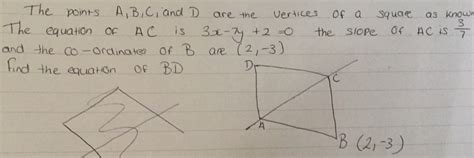 The points A, B, C, and D are the vertices of a square as known
The equation of AC is 3x-7y +2 =0 the slope of AC is 3/7
and the co-ordinates of B are (2,-3)
Find the equation of BD
D
C
A
B (2,-3)